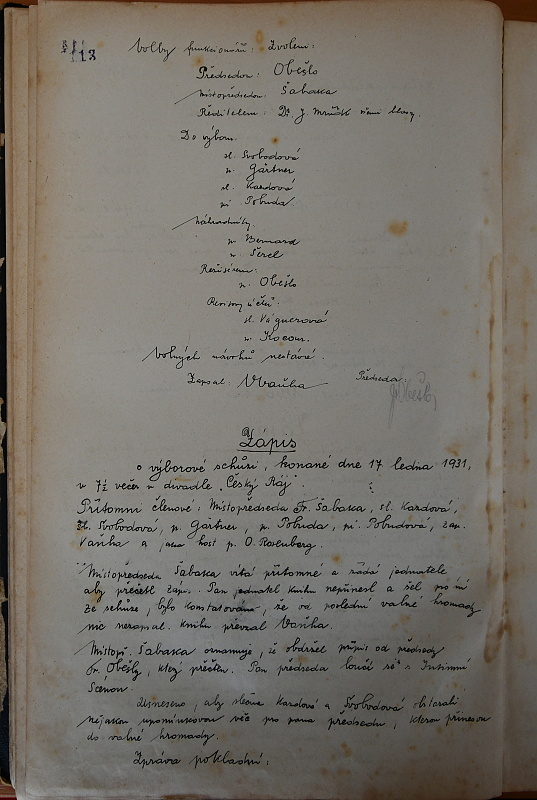 13
Volby funkcionářů: Zvolen:
Předsedou: Obešlo
Místopředsedou: Šabaka
Ředitelem: Dr. J.
Do výboru:
sl. Svobodová
p. Gärtner
sl. Kazdová
pí Pobuda
Náhradníky:
p. Bernard
p. Šercl
Režisérem:
p. Obešlo
Revisory účtů:
sl. Vágnerová
p. Kocour.
Volných návrhů nestává.
Zapsal: Vaňha Předseda:
Zápis
o výborové schůzi, konané dne 17 ledna 1931,
v 7½ večer v divadle "Český Ráj"
Přítomni členové: Místopředseda Fr. Šabaka, sl. Kazdová,
sl. Svobodová, p. Gärtner, p. Pobuda, pí. Pobudová, zap.
Vaňha a jako host p. O. Rosenberg.
Místopředseda Šabaka vítá přítomné a žádá jednatele
aby přečetl záp. Pan jednatel knihu nepřinesl a šel pro ni
ze schůze, bylo konstatováno, že od poslední valné hromady
nic nezapsal. Knihu převzal Vaňha.
Místopř. Šabaka oznamuje, že obdržel přípis od předsedy
Fr. Obešly, který přečten. Pan předseda loučí se s Intimní
Scénou.
Usneseno, aby slečna Kazdová a Svobodová obstarali
nějakou upomínkovou věc pro pana předsedu, kterou přinesou
do valné hromady.
Zpráva pokladní: